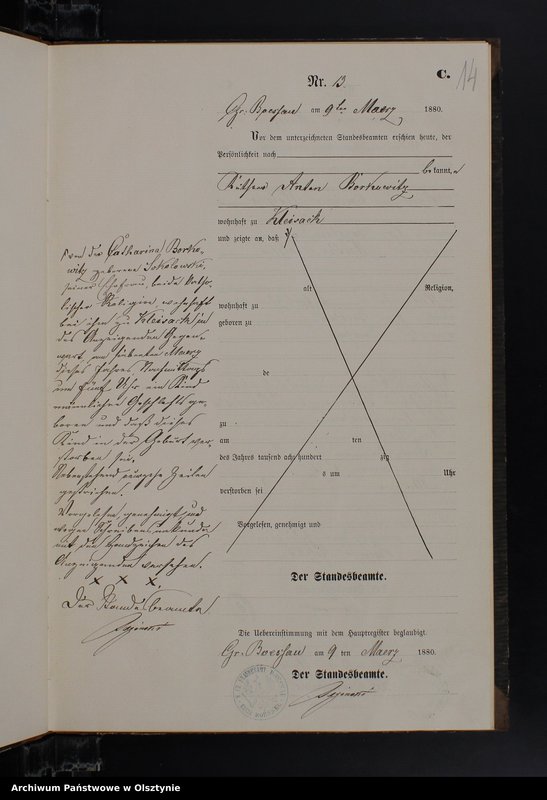 C. 14
Nr. 13
Gr. Boessau am 9ten Maerz 1880.
Vor dem unterzeichneten Standesbeamten erschien heute, der
Persönlichkeit nach
bekannt,
Anton Borkowitz
wohnhaft zu Kleisack
und zeigte an, daß
alt Religion,
wohnhaft zu
geboren zu
de
zu
am ten
des Jahres tausend acht hundert zig
s um Uhr
verstorben sei
Vorgelesen, genehmigt und
Der Standesbeamte.
Die Uebereinstimmung mit dem Hauptregister beglaubigt.
Gr. Boessau am 9 ten Maerz 1880.
Der Standesbeamte.
von der Catharina Borko-
witz geborene Sokolowski,
seiner Ehefrau, beide katho-
lischer Religion, wohnhaft
bei ihm zu Kleisack in
des Anzeigenden Gegen-
wart, am siebenten Maerz
dieses Jahres Nachmittags
um fünf Uhr ein Kind
männlichen Geschlechts ge-
boren und daß dieses
Kind in der Geburt ver-
storben sei.
Nebenstehend Zeilen
gestrichen.
Vorgelesen genehmigt und
wegen Schreibensunkunde
mit den Handzeichen des
Anzeigenden versehen.
x x x.
Der Standesbeamte
Archiwum Państwowe w Olsztynie